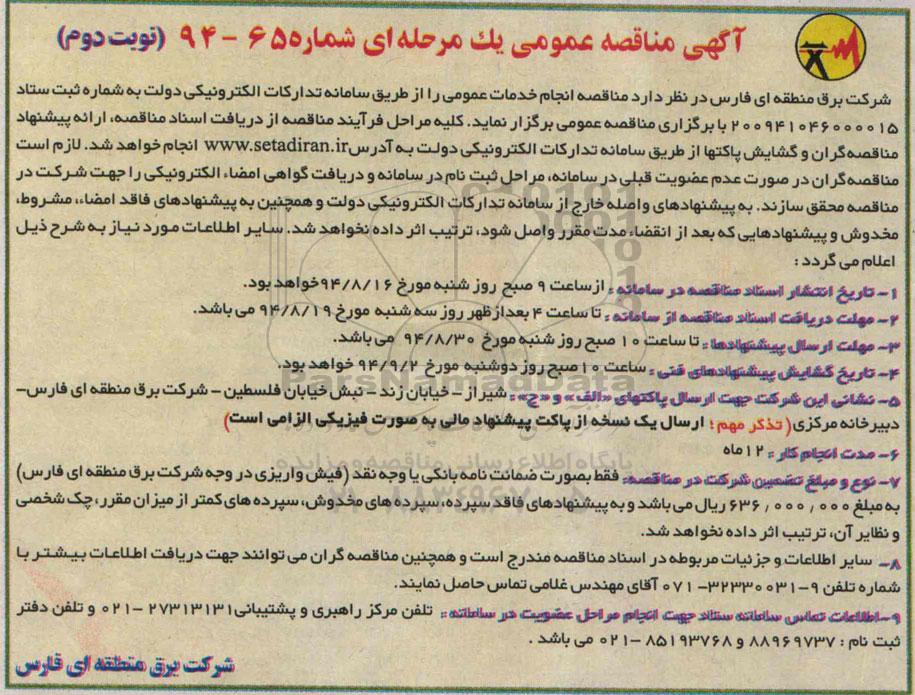 آگهی مناقصه عمومی یك مرحله ای شماره ۶۵ - ۹۴ (نوبت دوم)
شرکت برق منطقه ای فارس در نظر دارد مناقصه انجام خدمات عمومی را از طریق سامانه تدارکات الکترونیکی دولت به شماره ثبت ستاد
۲۰۰۹۴۱۰۴۶۰۰۰۰۱۵ با برگزاری مناقصه عمومی برگزار نماید. کلیه مراحل فرآیند مناقصه از دریافت اسناد مناقصه، ارائه پیشنهاد
مناقصه گران و گشایش پاکتها از طریق سامانه تدارکات الکترونیکی دولت به آدرس www.setadiran.ir انجام خواهد شد. لازم است
مناقصه گران در صورت عدم عضویت قبلی در سامانه، مراحل ثبت نام در سامانه و دریافت گواهی امضاء الکترونیکی را جهت شرکت در
مناقصه محقق سازند. به پیشنهادهای واصله خارج از سامانه تدارکات الکترونیکی دولت و همچنین به پیشنهادهای فاقد امضاء، مشروط،
مخدوش و پیشنهادهایی که بعد از انقضاء مدت مقرر واصل شود، ترتیب اثر داده نخواهد شد. سایر اطلاعات مورد نیاز به شرح ذیل
اعلام می گردد :
۱- تاریخ انتشار اسناد مناقصه در سامانه : از ساعت ۹ صبح روز شنبه مورخ ۹۴/۸/۱۶ خواهد بود.
۲- مهلت دریافت اسناد مناقصه از سامانه : تا ساعت ۴ بعدازظهر روز سه شنبه مورخ ۹۴/۸/۱۹ می باشد.
۳- مهلت ارسال پیشنهادها : تا ساعت ۱۰ صبح روز شنبه مورخ ۹۴/۸/۳۰ می باشد.
۴- تاریخ گشایش پیشنهادهای فنی : ساعت ۱۰ صبح روز دوشنبه مورخ ۹۴/۹/۲ خواهد بود.
۵- نشانی این شرکت جهت ارسال پاکتهای «الف» و «ج» : شیراز - خیابان زند - نبش خیابان فلسطین - شرکت برق منطقه ای فارس-
دبیرخانه مرکزی (تذکر مهم : ارسال یک نسخه از پاکت پیشنهاد مالی به صورت فیزیکی الزامی است)
۶- مدت انجام کار : ۱۲ ماه
۷- نوع و مبلغ تضمین شرکت در مناقصه: فقط بصورت ضمانت نامه بانکی یا وجه نقد (فیش واریزی در وجه شرکت برق منطقه ای فارس)
به مبلغ ۶۳۶,۰۰۰,۰۰۰ ریال می باشد و به پیشنهادهای فاقد سپرده، سپرده های مخدوش، سپرده های کمتر از میزان مقرر، چک شخصی
و نظایر آن، ترتیب اثر داده نخواهد شد.
۸- سایر اطلاعات و جزئیات مربوطه در اسناد مناقصه مندرج است و همچنین مناقصه گران می توانند جهت دریافت اطلاعات بیشتر با
شماره تلفن ۹-۳۲۳۳۰۰۳۱-۰۷۱ آقای مهندس غلامی تماس حاصل نمایند.
۹- اطلاعات تماس سامانه ستاد جهت انجام مراحل عضویت در سامانه : تلفن مرکز راهبری و پشتیبانی ۲۷۳۱۳۱۳۱-۰۲۱ و تلفن دفتر
ثبت نام : ۸۸۹۶۹۷۳۷ و ۸۵۱۹۳۷۶۸-۰۲۱ می باشد .
شرکت برق منطقه ای فارس
ParsNamadData
پایگاه اطلاع رسانی مناقصه و مزایده